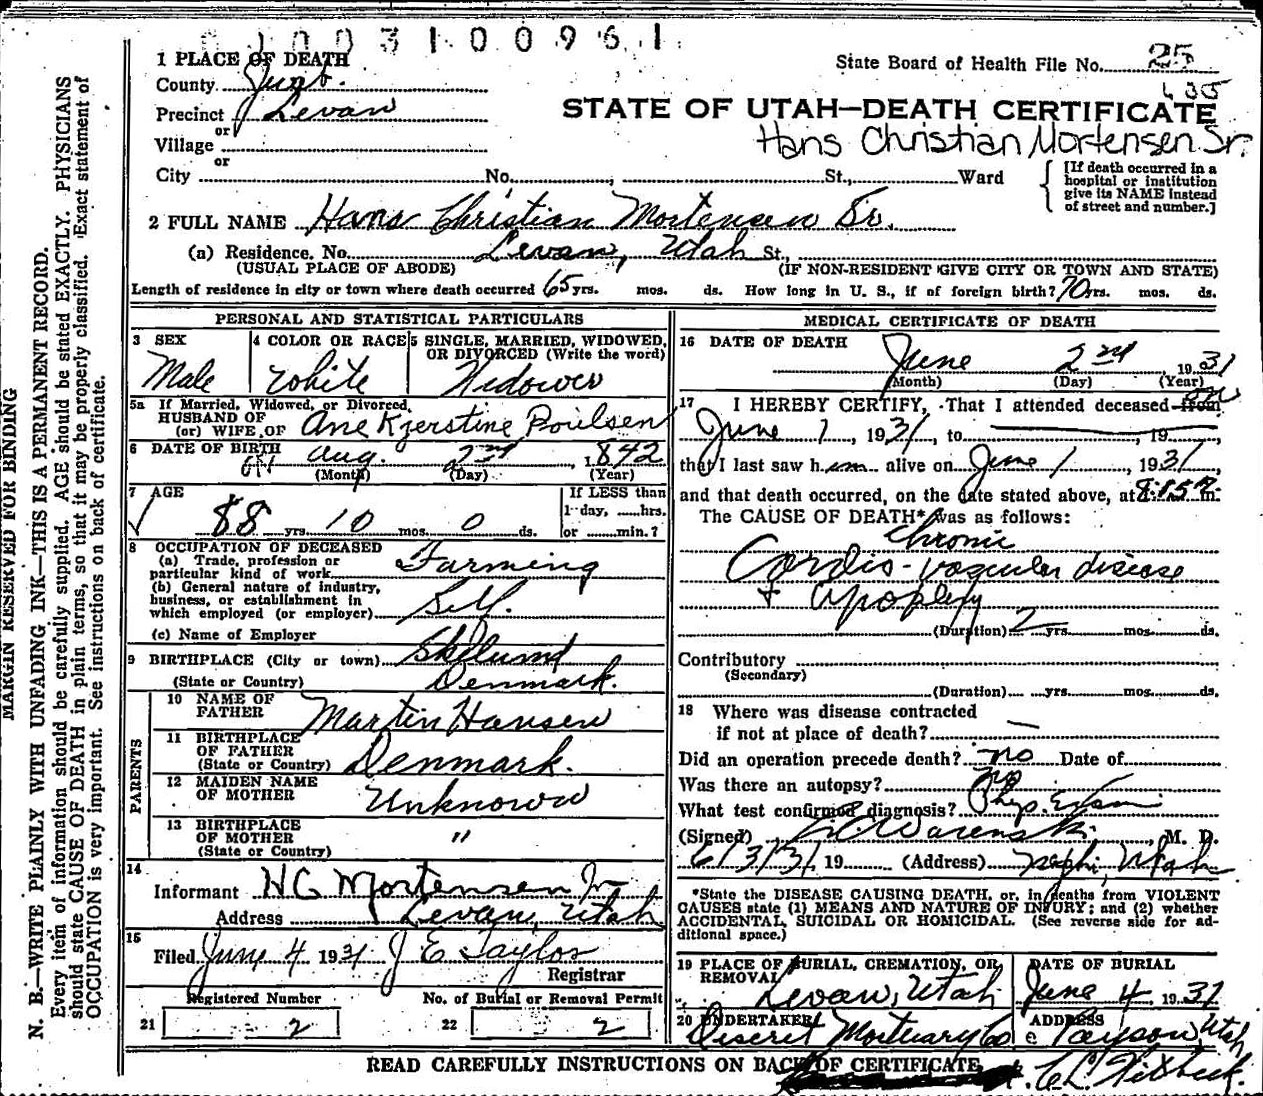 0 1 0 0 3 1 0 0 9 6 1
1 PLACE OF DEATH
County Juab.
State Board of Health File No. 25
Precinct Levan
or
STATE OF UTAH—DEATH CERTIFICATE
Hans Christian Mortensen Sr.
Village
or
City No. , St., Ward
[If death occurred in a hospital or institution give its NAME instead of street and number.]
2 FULL NAME Hans Christian Mortensen Sr.
(a) Residence. No. Levan, Utah St.,
(USUAL PLACE OF ABODE) (IF NON-RESIDENT GIVE CITY OR TOWN AND STATE)
Length of residence in city or town where death occurred 65 yrs. mos. ds. How long in U. S., if of foreign birth? 70 yrs. mos. ds.
PERSONAL AND STATISTICAL PARTICULARS
3 SEX
Male
4 COLOR OR RACE
White
5 SINGLE, MARRIED, WIDOWED, OR DIVORCED (Write the word)
Widower
5a If Married, Widowed, or Divorced,
HUSBAND OF
(or) WIFE OF Ane Kjerstine Poulsen
6 DATE OF BIRTH Aug. 2nd 1842
(Month) (Day) (Year)
7 AGE
88 yrs. 10 mos. 0 ds.
If LESS than
1 day, ......hrs.
or ......min.?
8 OCCUPATION OF DECEASED
(a) Trade, profession or
particular kind of work Farming
(b) General nature of industry,
business, or establishment in
which employed (or employer) Self.
(c) Name of Employer
9 BIRTHPLACE (City or town) Skelund
(State or Country) Denmark.
PARENTS
10 NAME OF
FATHER Martin Hansen
11 BIRTHPLACE
OF FATHER
(State or Country) Denmark.
12 MAIDEN NAME
OF MOTHER Unknown
13 BIRTHPLACE
OF MOTHER "
(State or Country)
14
Informant H C Mortensen Jr
Address Levan, Utah
15
Filed June 4 1931 J E Taylor
Registrar
Registered Number
21 2
No. of Burial or Removal Permit
22 2
MEDICAL CERTIFICATE OF DEATH
16 DATE OF DEATH
June 2nd 1931
(Month) (Day) (Year)
17 I HEREBY CERTIFY, That I attended deceased from on
June 1, 1931, to , 19
that I last saw him alive on June 1, 1931,
and that death occurred, on the date stated above, at 8:15 P. m.
The CAUSE OF DEATH* was as follows:
Chronic
Cordio-vascular disease
+ apoplexy
(Duration) 2 yrs. mos. ds.
Contributory
(Secondary)
(Duration) yrs. mos. ds.
18 Where was disease contracted
if not at place of death? —
Did an operation precede death? no Date of
Was there an autopsy? no
What test confirmed diagnosis? Phys. Exam
(Signed) Warenski, M. D.
6/3/31 19 (Address) Nephi, Utah
*State the DISEASE CAUSING DEATH, or, in deaths from VIOLENT
CAUSES state (1) MEANS AND NATURE OF INJURY; and (2) whether
ACCIDENTAL, SUICIDAL OR HOMICIDAL. (See reverse side for ad-
ditional space.)
19 PLACE OF BURIAL, CREMATION, OR
REMOVAL
Levan, Utah
DATE OF BURIAL
June 4 1931
20 UNDERTAKER
Deseret Mortuary Co
ADDRESS
Payson, Utah
READ CAREFULLY INSTRUCTIONS ON BACK OF CERTIFICATE
MARGIN RESERVED FOR BINDING
N. B.—WRITE PLAINLY WITH UNFADING INK—THIS IS A PERMANENT RECORD.
Every item of information should be carefully supplied. AGE should be stated EXACTLY. PHYSICIANS
should state CAUSE OF DEATH in plain terms, so that it may be properly classified. Exact statement of
OCCUPATION is very important. See instructions on back of certificate.